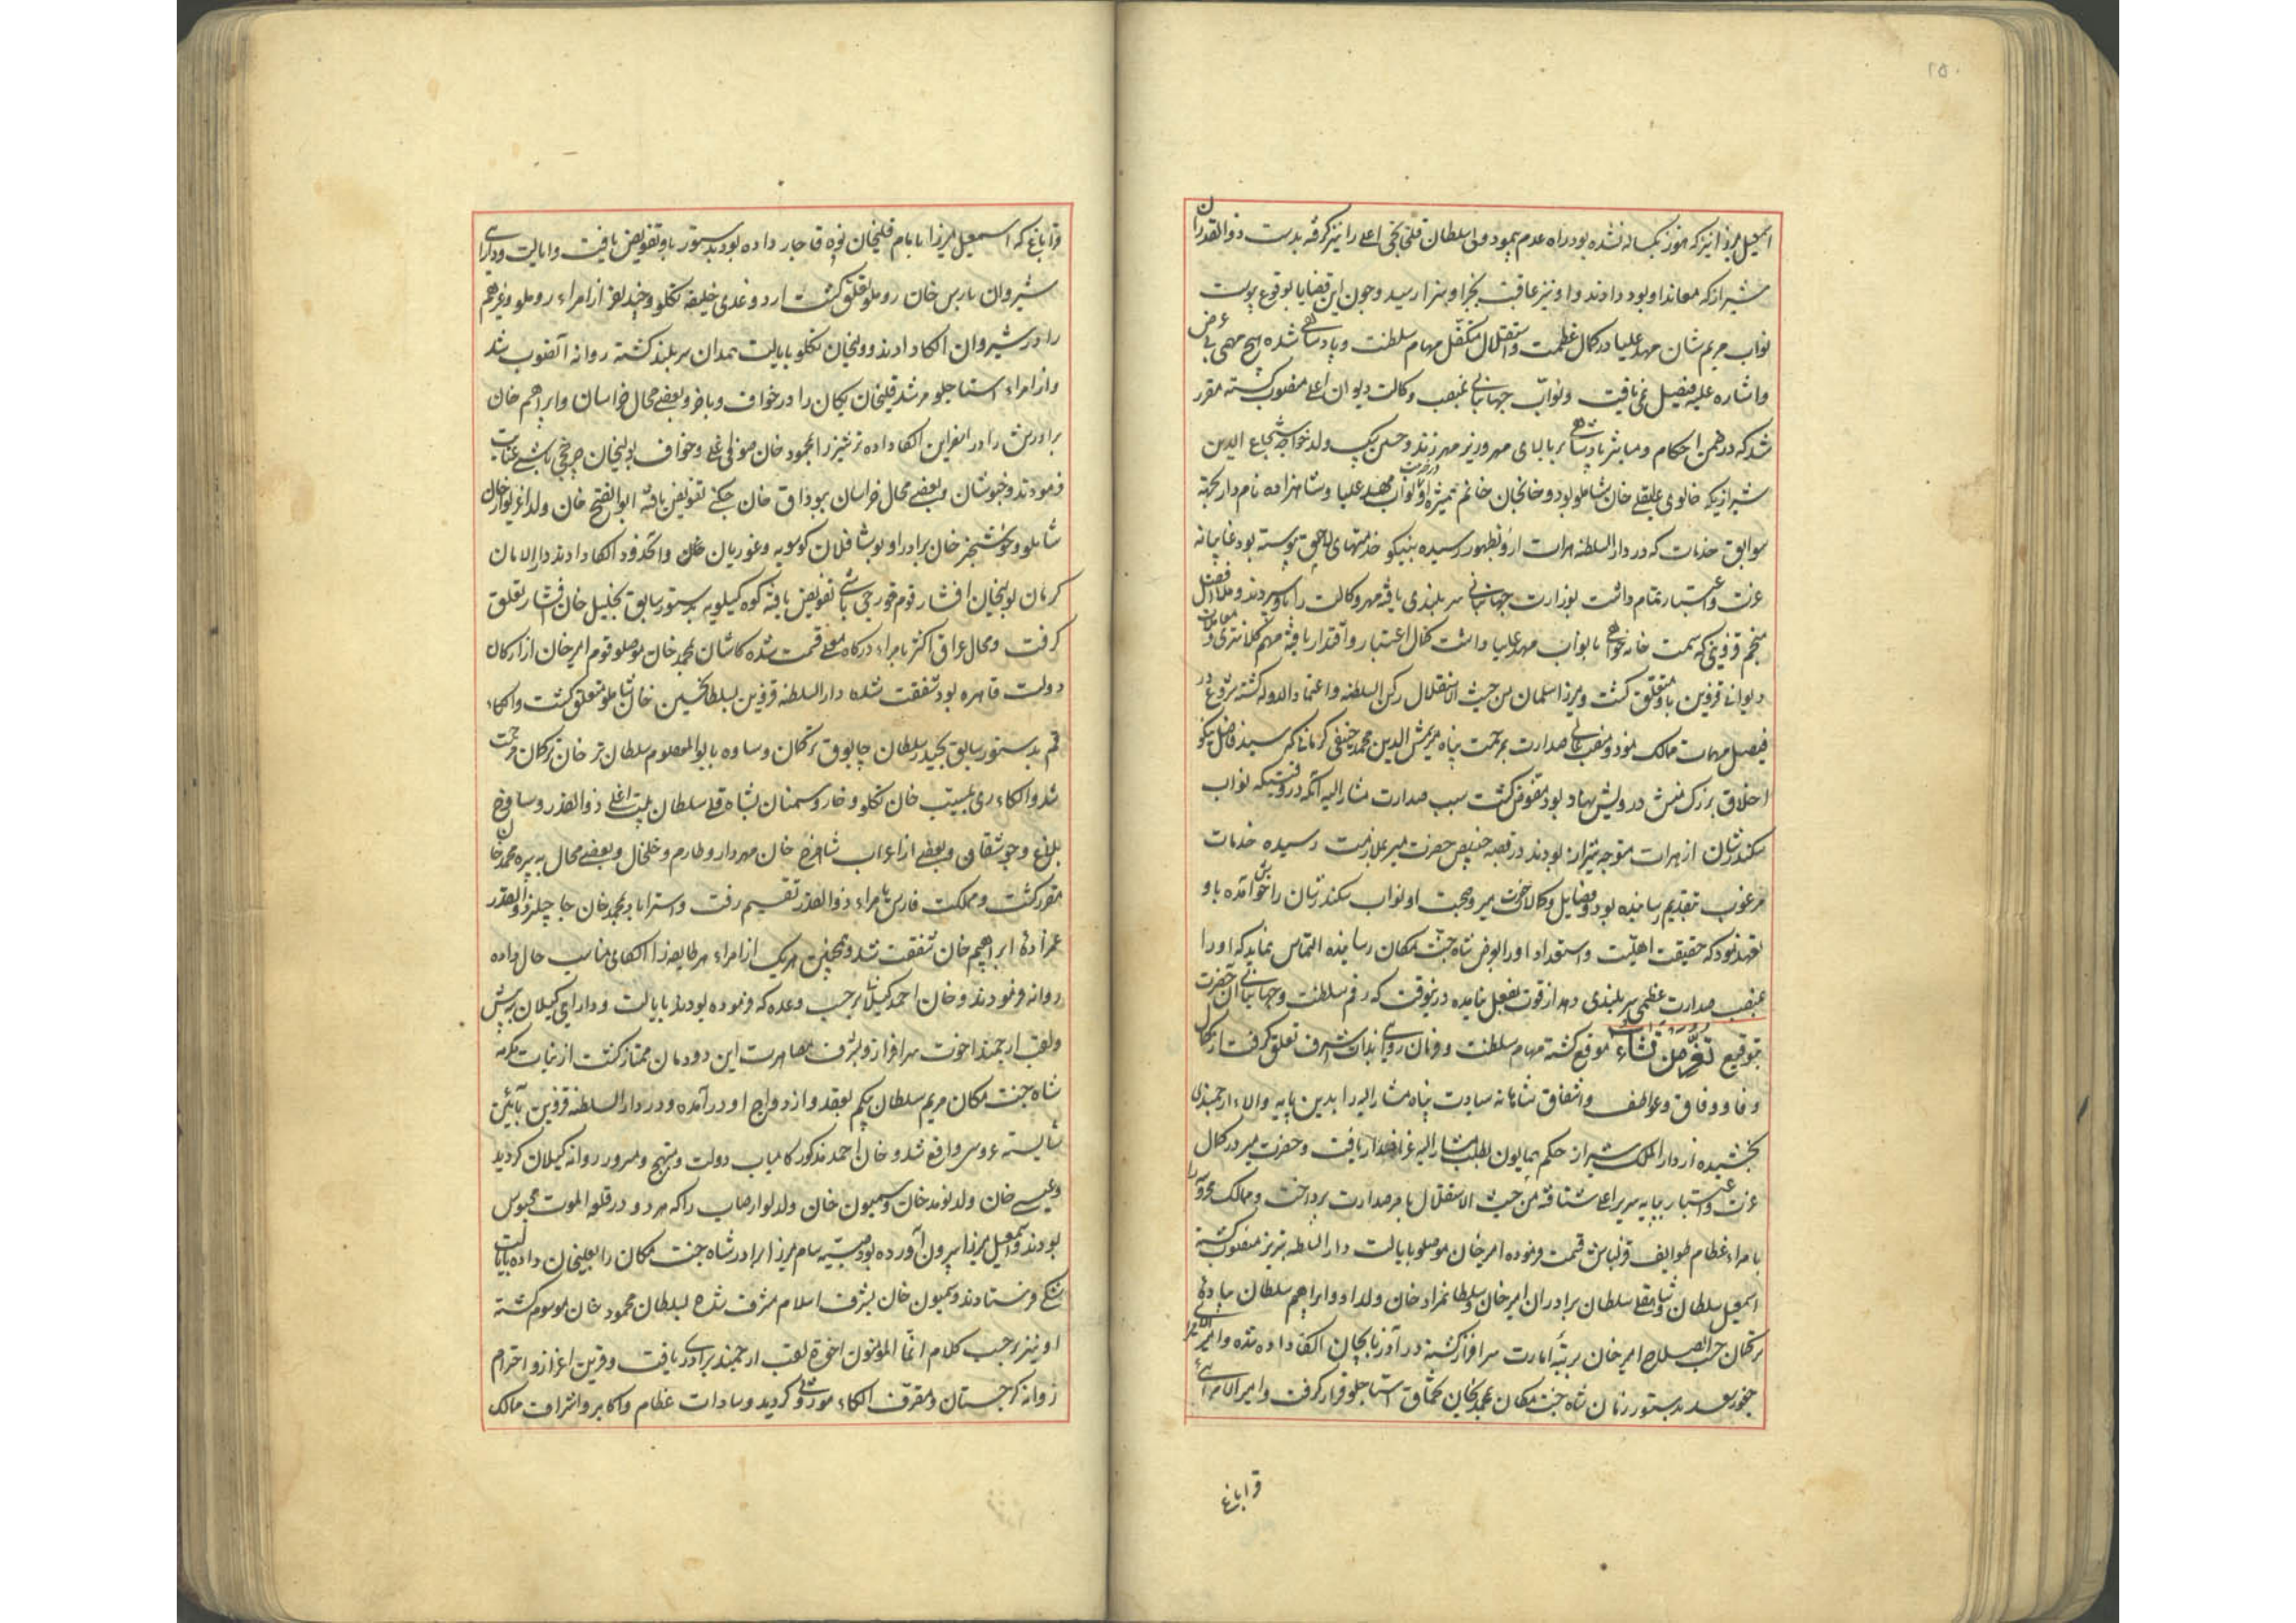 ۲۵۰
اسمعیل میرزا نیز که هنوز یکساله نشده بود راه عدم پیمود ولی سلطان قلخانچی اغلی را نیز گرفته بدست ذوالقدران
شیراز که معاند او بود دادند و او نیز عاقبت بجزا و سزا رسید و چون این قضایا بوقوع پیوست
نواب مریم شان مهد علیا در کمال عظمت و استقلال متکفل مهام سلطنت و پادشاهی شده هیچ مهمی بی عرض
و اشاره علیه فیصل نمی یافت و نواب جهانبانی بمنصب وکالت دیوان اعلی منصوب گشته مقرر
شد که در ضمن احکام و مناشیر پادشاهی بر بالای مهر وزیر مهر زنند و حسین بیک ولد خواجه شجاع الدین
شیرازی که خالوی علیقلی خان شاملو بود و خانجان خانم همشیره او در خدمت نواب مهد علیا و شاهزاده نامدار بجهة
سوابق خدمات که در دار السلطنه هرات ازو بظهور رسیده بنیکو خدمتهای لاحق پیوسته بود غایبانه
عزت و اعتبار تمام داشت بوزارت جهانبانی سر بلندی یافته مهر وکالت را باو سپردند و ملا افضل
منجم قزوینی که سمت خانه خواهی با نواب مهد علیا داشت کمال اعتبار و اقتدار یافته مهم کلانتری و معاملات
دیوانی قزوین باو متعلق گشت و میرزا سلمان من حیث الاستقلال رکن السلطنه و اعتماد الدوله گشته شروع در
فیصل مهمات ممالک نمود و منصب عالی صدارت بمرحمت پناه میر شمس الدین محمد خبیصی کرمانی که سید فاضل نیکو
اخلاق بزرگ منش درویش نهاد بود مفوض گشت سبب صدارت مشار الیه آنکه در وقتیکه نواب
سکندر شان از هرات متوجه شیراز بودند در قصبه خبیص حضرت میر بملازمت رسیده خدمات
مرغوب بتقدیم رسانیده بود و فضایل و کمالات حضرت میر و صحبت او نواب سکندر شان را خوش آمده باو
تعهد نمود که حقیقت اهلیت و استعداد او را بعرض شاه جنت مکان رسانیده التماس نماید که او را
بمنصب صدارت عظمی سر بلندی دهد از قوت بفعل نیامده درینوقت که رقم سلطنت و جهانبانی آن حضرت
بتوقیع تعز من تشاء موقع گشته مهام سلطنت و فرمان روایی بذات اشرف تعلق گرفت از کمال
وفا و وفاق و عواطف و اشفاق شاهانه سیادت پناه مشار الیه را بدین پایه والا ارجمندی
بخشیده از دار الملک شیراز حکم همایون بطلب مشار الیه عز اصدار یافت و حضرت میر در کمال
عزت و اعتبار بپایه سریر اعلی شتافته من حیث الاستقلال بامر صدارت پرداخت و ممالک محروسه را
بامراء عظام طوایف قزلباش قسمت فرموده امیر خان موصلو بایالت دار السلطنه تبریز منصوب گشته
اسمعیل سلطان و شاهقلی سلطان برادران امیر خان و سلطانمراد خان ولد او و ابراهیم سلطان
ترکمان حسب الصلاح امیر خان برتبه امارت سرافراز گشته در آذربایجان الکا داده شده و امیر الامرائی
چخور سعد بدستور زمان شاه جنت مکان بمحمد خان تخماق استاجلو قرار گرفت و امیر الامرائی
قراباغ
قراباغ که اسمعیل میرزا بامام قلیخان نوه قاجار داده بود بدستور باو تفویض یافت و ایالت و دارایی
شیروان بارس خان روملو تعلق گشت اردوغدی خلیفه تکلو و چند نفر از امراء روملو و غیرهم
را در شیروان الکا دادند و ولیخان تکلو بایالت همدان سر بلند گشته روانه آنصوب شد
و از امراء استاجلو مرشد قلیخان یکان را در خواف و باخرز و بعضی محال خراسان و ابراهیم خان
برادرش را در اسفراین الکا داده ترشیز را بمحمود خان صوفی اغلی و خواف بولیخان عنایت
فرمودند و خبوشان و بعضی محال خراسان ببوداق خان چگنی تفویض یافته ابو الفتح خان ولد اغزیوار خان
شاملو و خوشخبر خان برادر او بوشافلان کوسویه و غوریان و آنحدود الکا دادند دار الامان
کرمان بولیجان افشار قوم قورچی باشی تفویض یافته کوه کیلویه بدستور سابق بخلیل خان افشار تعلق
گرفت و محال عراق اکثر بامراء درگاه معلی قسمت شده کاشان بمحمد خان موصلو قوم امیر خان از ارکان
دولت قاهره بود شفقت شد دار السلطنه قزوین بسلطانحسین خان شاملو متعلق گشت و الکاء
قم بدستور سابق بحیدر سلطان چابوق ترکمان و ساوه بابوالمعصوم سلطان ترخان ترکمان مرحمت
شد و الکاء ری بمسیب خان تکلو و خار و سمنان بشاه قلی سلطان اغلی ذوالقدر و
و جوشقان و بعضی از اعراب شاهرخ خان مهردار و طارم و خلخال و بعضی محال به پیره محمد خان
مقرر گشت و مملکت فارس بامراء ذوالقدر تقسیم رفت و استراباد بمحمد خان حاجیلر ذوالقدر
عمزاده ابراهیم خان شفقت شد و همچنین هر یک از امراء هر طایفه را الکای مناسب حال داده
روانه فرمودند و خان احمد گیلانی بر حسب وعده که فرموده بودند بایالت و دارایی گیلان بیه پیش
و لقب ارجمند اخوت سرافراز و بشرف مصاهرت این دودمان ممتاز گشت از بنات مکرمه
شاه جنت مکان مریم سلطان بیگم بعقد و ازدواج او در آمده و در دار السلطنه قزوین بآئین
شایسته عروسی واقع شد و خان احمد مذکور کامیاب دولت و مبتهج و مسرور روانه گیلان گردید
و عیسی خان ولد لوند خان و سمیون خان ولد لوارصاب را که هر دو در قلعه الموت محبوس
بودند و اسمعیل میرزا بیرون آورده بود صبیه سام میرزا برادر شاه جنت مکان را بعیسی خان داده بایالت
شکی فرستادند و سمیون خان بشرف اسلام مشرف شده بسلطان محمود خان موسوم گشته
او نیز بر حسب کلام انما المؤمنون اخوة لقب ارجمند برادری یافت و قرین اعزاز و احترام
روانه گرجستان و متصرف الکاء موروثی گردید و سادات عظام و اکابر و اشراف ممالک